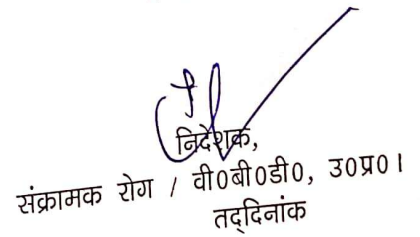 निदेशक,
संक्रामक रोग / वी०बी०डी०, उ०प्र०।
तद्दिनांक